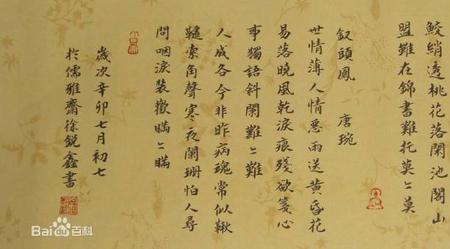 鮫綃透桃花落閑池閣山
盟難在錦書難托莫々莫
釵頭鳳 唐琬
世情薄人情惡雨送黃昏花
易落曉風乾淚痕殘欲箋心
事獨語斜闌難々難
人成各今非昨病魂常似鞦
韆索角聲寒夜闌珊怕人尋
問咽淚裝歡瞞々瞞
歲次辛卯七月初七
於儒雅齋徐銳鑫書
Baidu百科